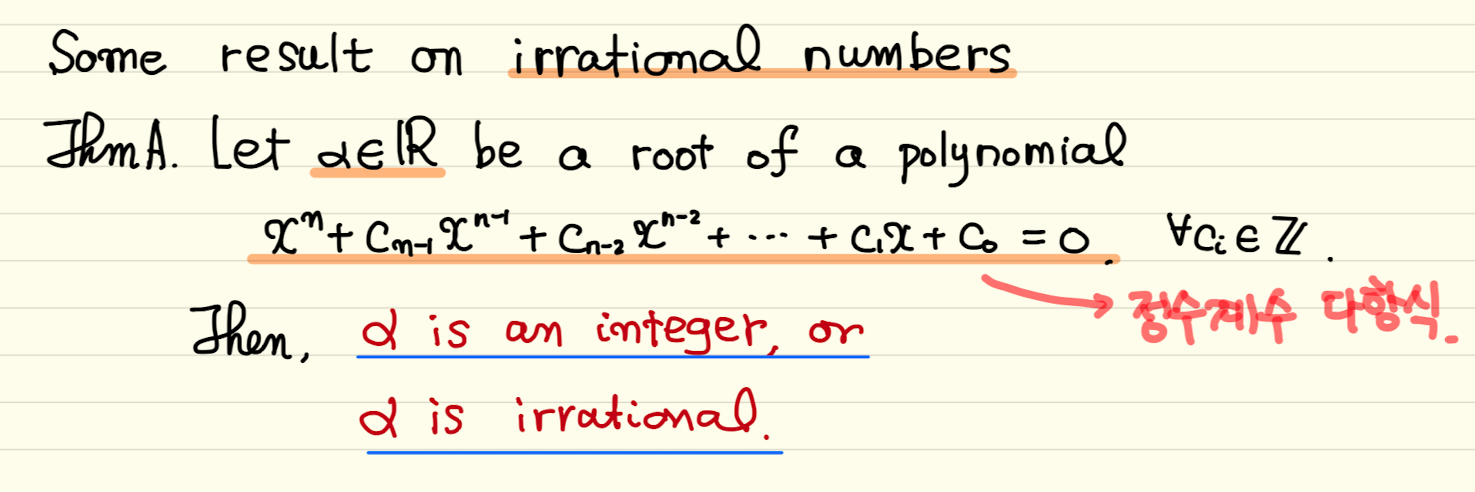 Some result on irrational numbers
Thm A. Let α∈ℝ be a root of a polynomial
xⁿ + Cₙ₋₁xⁿ⁻¹ + Cₙ₋₂xⁿ⁻² + ⋯ + C₁x + C₀ = 0. ∀Cᵢ ∈ ℤ.
→ 정수계수 다항식.
Then, α is an integer, or
α is irrational.